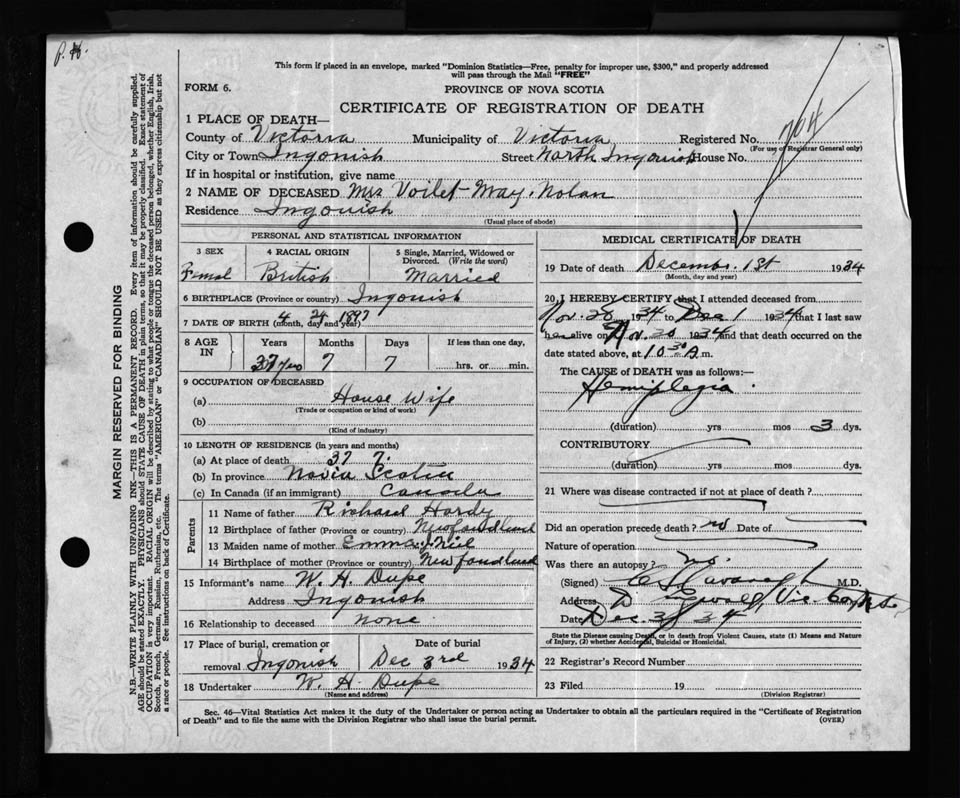 P. H.
This form if placed in an envelope, marked "Dominion Statistics—Free, penalty for improper use, $300," and properly addressed
will pass through the Mail "FREE"
FORM 6.
PROVINCE OF NOVA SCOTIA
CERTIFICATE OF REGISTRATION OF DEATH
1 PLACE OF DEATH—
County of Victoria Municipality of Victoria Registered No. 704
(For use of Registrar General only)
City or Town Ingonish Street North Ingonish House No.
If in hospital or institution, give name
2 NAME OF DECEASED Mrs Voilet May. Nolan
Residence Ingonish
(Usual place of abode)
PERSONAL AND STATISTICAL INFORMATION
3 SEX 4 RACIAL ORIGIN 5 Single, Married, Widowed or
Divorced. (Write the word)
Femal British Married
6 BIRTHPLACE (Province or country) Ingonish
7 DATE OF BIRTH (month, day and year) 4 24 1897
8 AGE IN Years Months Days If less than one day,
37 yrs 7 7 hrs. or min.
9 OCCUPATION OF DECEASED
(a) House Wife
(Trade or occupation or kind of work)
(b)
(Kind of industry)
10 LENGTH OF RESIDENCE (in years and months)
(a) At place of death 37 7.
(b) In province Novia Scotia
(c) In Canada (if an immigrant) Canada
Parents
11 Name of father Richard Hardy
12 Birthplace of father (Province or country) Newfoundland
13 Maiden name of mother Emma Neil
14 Birthplace of mother (Province or country) Newfoundland
15 Informant's name W. H. Dupe
Address Ingonish
16 Relationship to deceased none.
17 Place of burial, cremation or Date of burial
removal Ingonish Dec 3rd 1934
18 Undertaker W. H. Dupe
(Name and address)
MEDICAL CERTIFICATE OF DEATH
19 Date of death December. 1st 1934
(Month, day and year)
20 I HEREBY CERTIFY that I attended deceased from
Nov. 28 1934 to Dec 1 1934 that I last saw
her alive on Nov. 30 1934 and that death occurred on the
date stated above, at 10.30 A.m.
The CAUSE of DEATH was as follows:—
Hemiplegia.
(duration) yrs mos 3 dys.
CONTRIBUTORY
(duration) yrs. mos. dys.
21 Where was disease contracted if not at place of death?
Did an operation precede death? no Date of
Nature of operation
Was there an autopsy? no.
(Signed) M.D.
Address
Date Dec. 3/34
State the Disease causing Death, or in death from Violent Causes, state (1) Means and Nature
of Injury, (2) whether Accidental, Suicidal or Homicidal.
22 Registrar's Record Number
23 Filed 19
(Division Registrar)
Sec. 46—Vital Statistics Act makes it the duty of the Undertaker or person acting as Undertaker to obtain all the particulars required in the "Certificate of Registration
of Death" and to file the same with the Division Registrar who shall issue the burial permit.
(OVER)
MARGIN RESERVED FOR BINDING
N.B.—WRITE PLAINLY WITH UNFADING INK—THIS IS A PERMANENT RECORD. Every item of information should be carefully supplied.
AGE should be stated EXACTLY. PHYSICIANS should STATE CAUSE OF DEATH in plain terms, so that it may be properly classified. Exact statement of
OCCUPATION is very important. RACIAL ORIGIN will be described by stating to what people or tongue the deceased person belonged, whether English, Irish,
Scotch, French, German, Russian, Ruthenian, etc. The terms "AMERICAN" or "CANADIAN" SHOULD NOT BE USED as they express citizenship but not
a race or people. See instructions on back of Certificate.